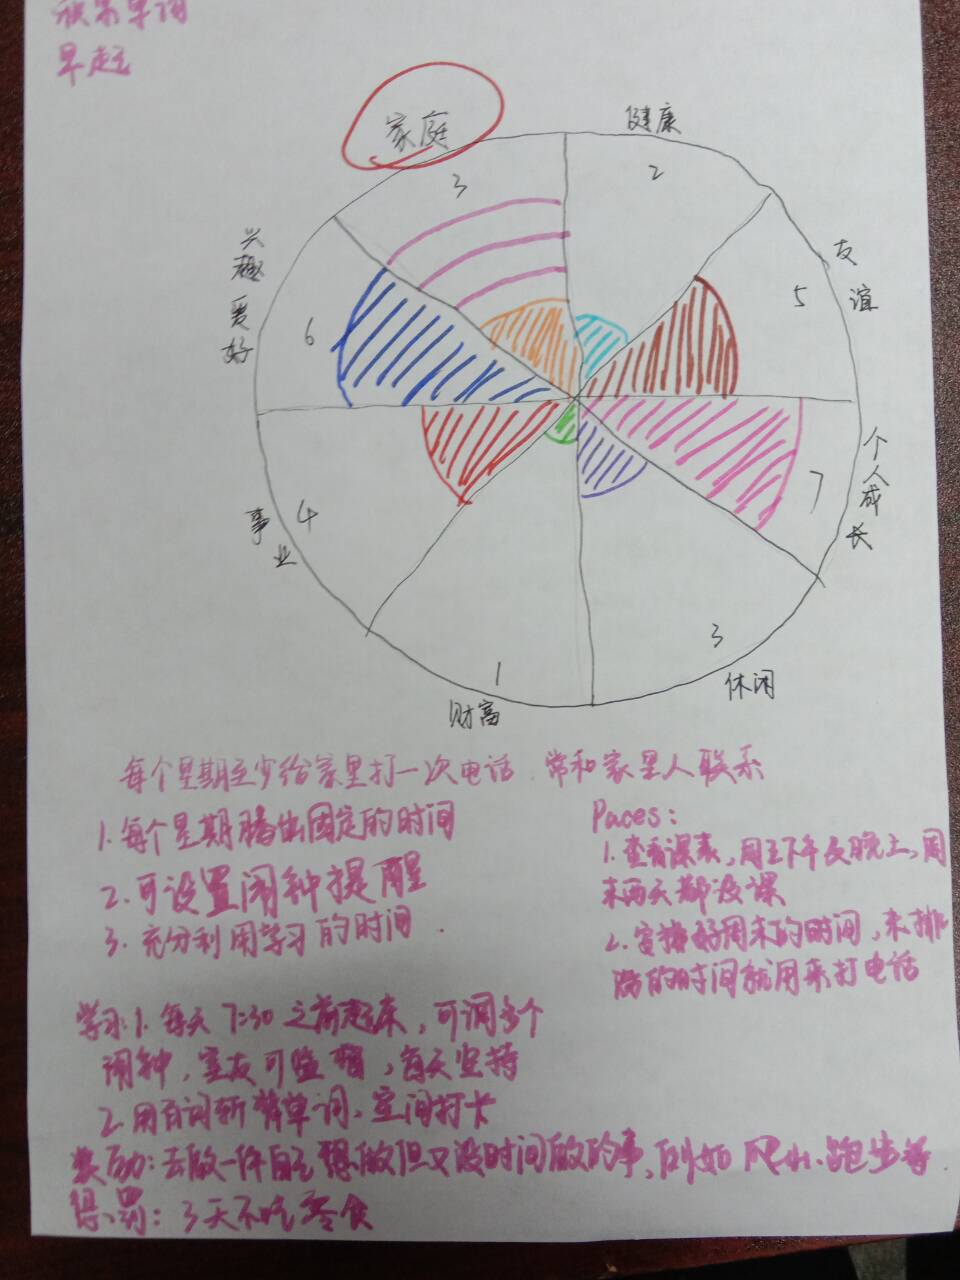 单词
早起
家庭
健康
3
2
兴趣爱好
友谊
6
5
个人成长
7
事业
4
1
3
财富
休闲
每个星期至少给家里打一次电话 常和家里人联系
1.每个星期腾出固定的时间
2.可设置闹钟提醒
3.充分利用学习的时间.
Paces:
1.查看课表,周五下午及晚上,周
末两天都没课
2.安排好周末的时间,未排
的时间就用来打电话
学习:1.每天7:30之前起来,可调多个
闹钟,室友可监督,每天坚持
2.用百词斩背单词,空间打卡
奖励:去做一件自己想做但又没时间做的事,例如爬山、跑步等.
惩罚:3天不吃零食